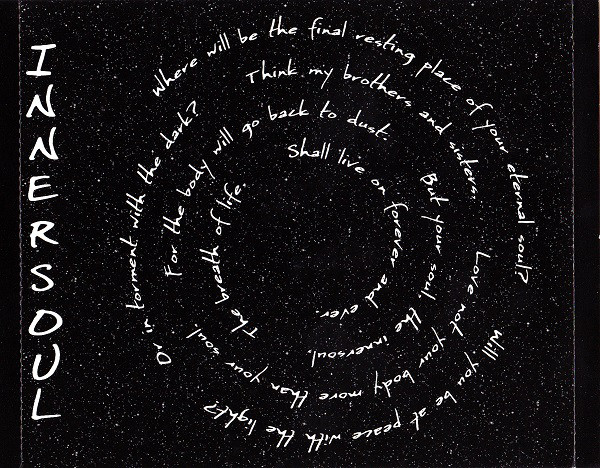 INNERSOUL
Where will be the final resting place of your eternal soul?
Will you be at peace with the light?
Or in torment with the dark?
Think my brothers and sisters.
Love not your body more than your soul.
For the body will go back to dust.
But your soul the innersoul.
The breath of life.
Shall live on forever and ever.